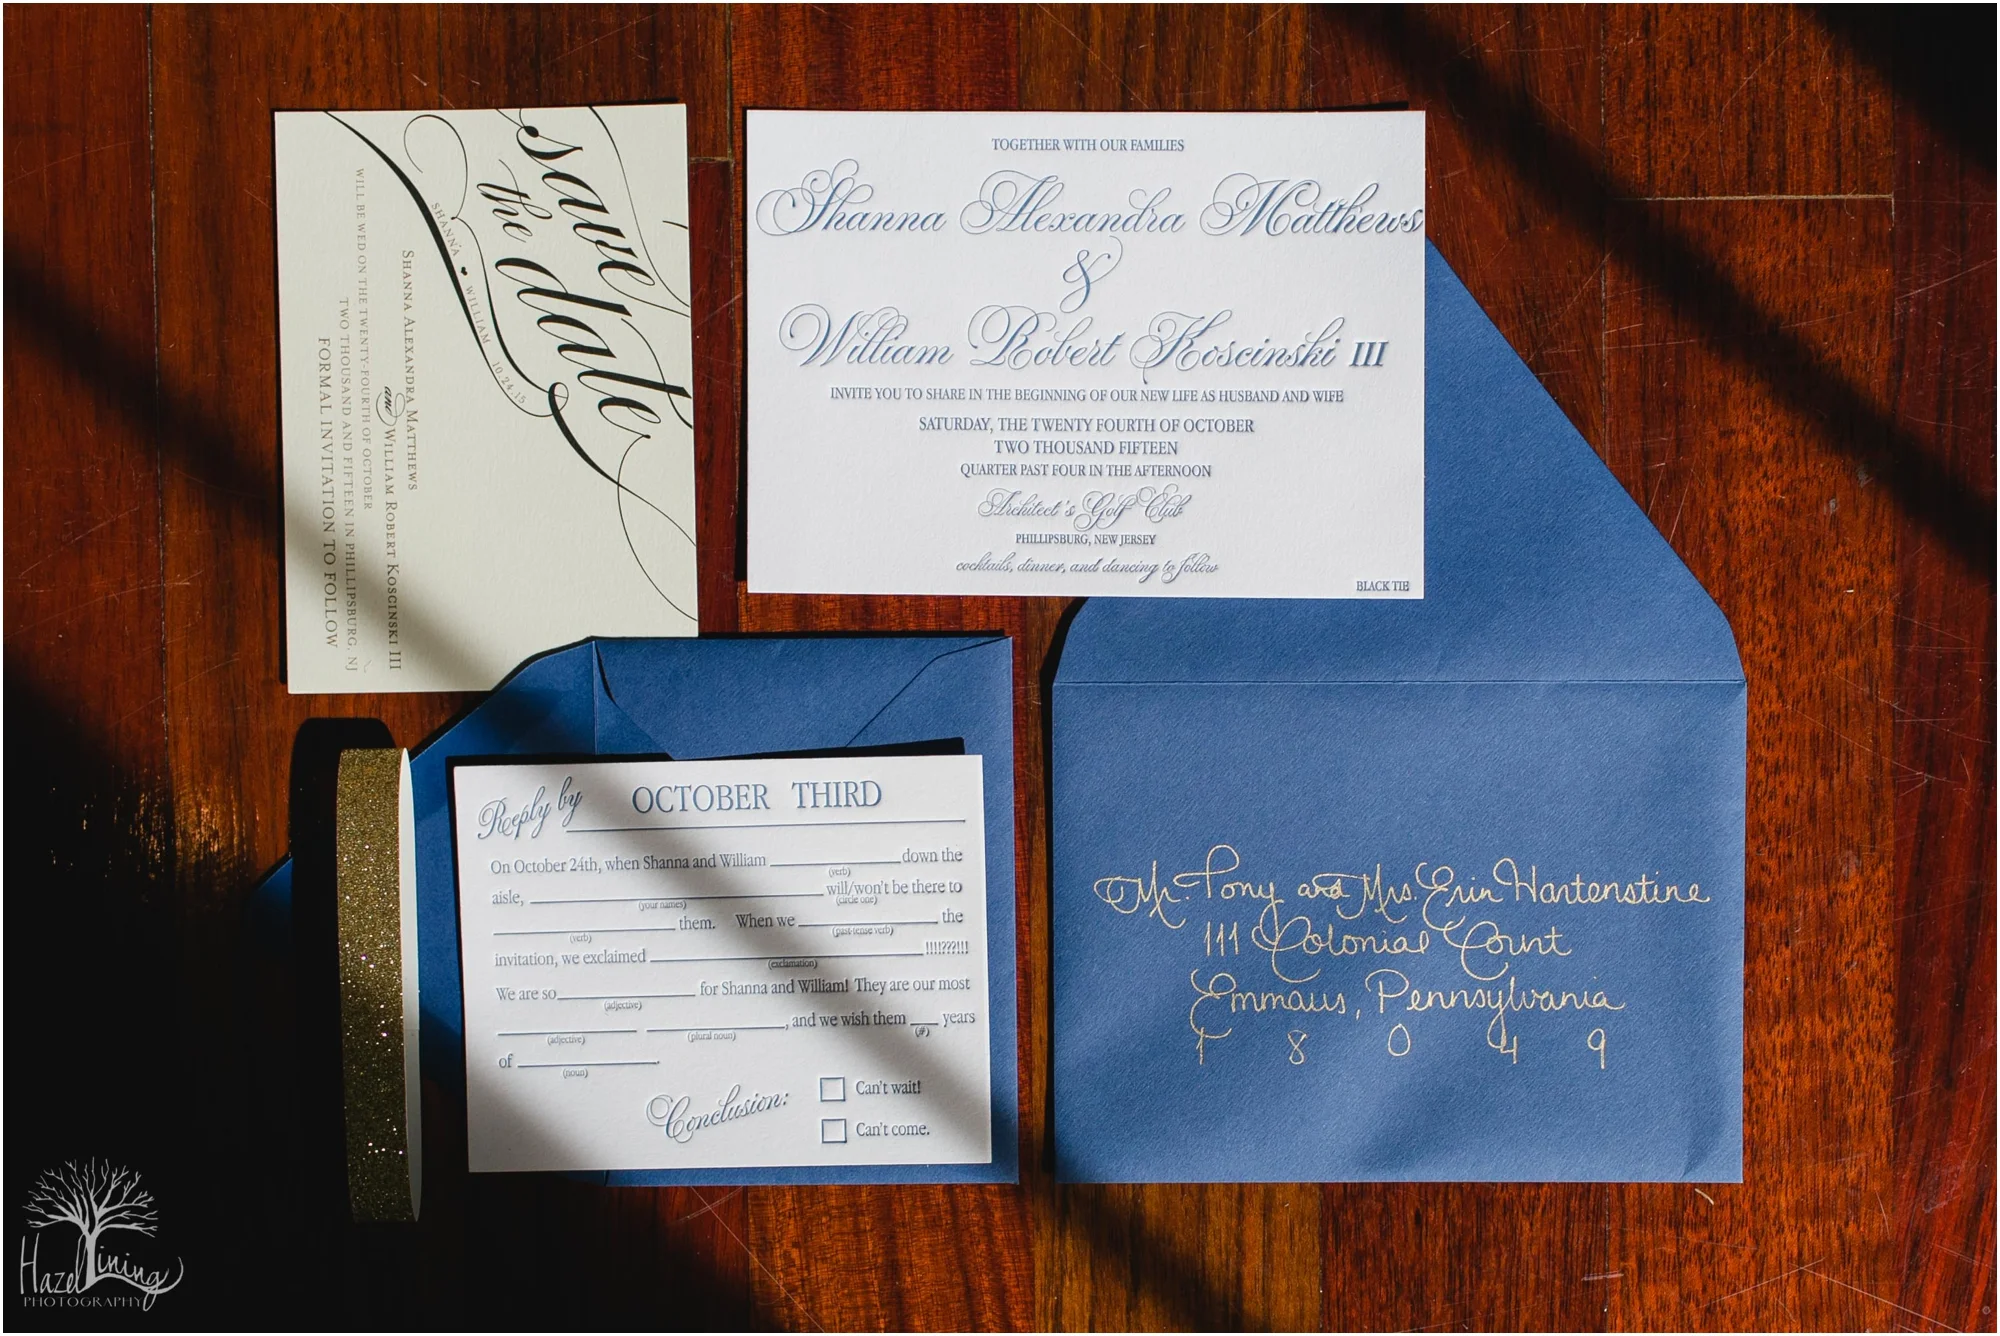 save
the date
SHANNA ♥ WILLIAM 10.24.15
SHANNA ALEXANDRA MATTHEWS
and WILLIAM ROBERT KOSCINSKI III
WILL BE WED ON THE TWENTY-FOURTH OF OCTOBER
TWO THOUSAND AND FIFTEEN IN PHILLIPSBURG, NJ
FORMAL INVITATION TO FOLLOW
TOGETHER WITH OUR FAMILIES
Shanna Alexandra Matthews
&
William Robert Koscinski III
INVITE YOU TO SHARE IN THE BEGINNING OF OUR NEW LIFE AS HUSBAND AND WIFE
SATURDAY, THE TWENTY FOURTH OF OCTOBER
TWO THOUSAND FIFTEEN
QUARTER PAST FOUR IN THE AFTERNOON
Architect's Golf Club
PHILLIPSBURG, NEW JERSEY
cocktails, dinner, and dancing to follow
BLACK TIE
Reply by OCTOBER THIRD
On October 24th, when Shanna and William ____ down the
(verb)
aisle, ____ will/won't be there to
(your names) (circle one)
____ them. When we ____ the
(verb) (past-tense verb)
invitation, we exclaimed ____ !!!!???!!!
(exclamation)
We are so ____ for Shanna and William! They are our most
(adjective)
____ ____, and we wish them ____ years
(adjective) (plural noun) (#)
of ____.
(noun)
Conclusion: □ Can't wait!
□ Can't come.
Mr. Tony and Mrs. Erin Hartenstine
111 Colonial Court
Emmaus, Pennsylvania
1 8 0 4 9
Hazel Lining
PHOTOGRAPHY